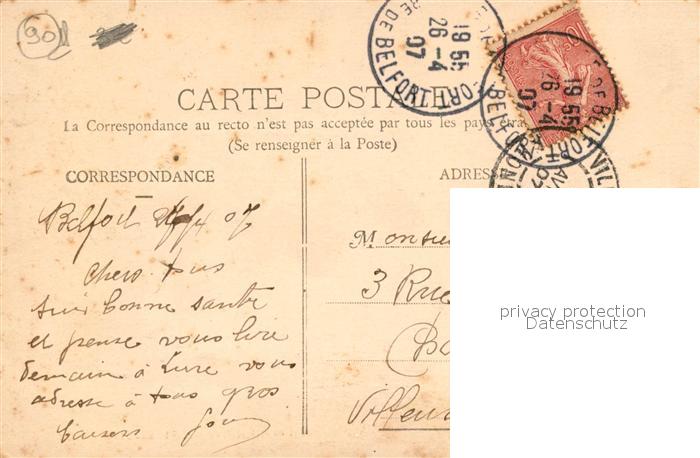 90
GARE DE BELFORT
19 55
26 - 4
07
GARE DE BELFORT
19 55
26 - 4
07
CARTE POSTALE
La Correspondance au recto n'est pas acceptée par tous les pays étra
(Se renseigner à la Poste)
CORRESPONDANCE
ADRESSE
Belfort 26/4 07
Chers tous
suis bonne santé
et pense vous lire
demain à Lure vous
adresse à tous gros
baisers
Monsieu
3 Rue
Villeur
privacy protection
Datenschutz